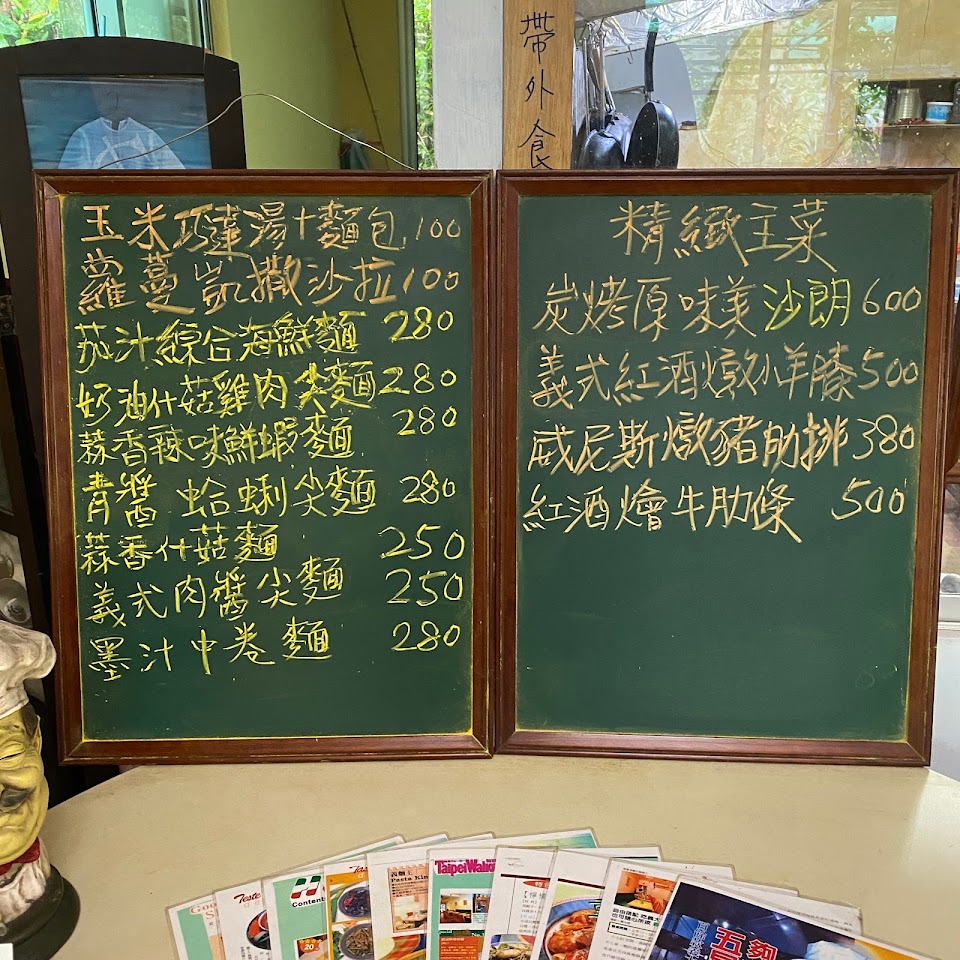 帶外食
玉米巧達湯+麵包 100
蘿蔓凱撒沙拉 100
茄汁綜合海鮮麵 280
奶油什菇雞肉尖麵 280
蒜香辣味鮮蝦麵 280
青醬 蛤蜊尖麵 280
蒜香什菇麵 250
義式肉醬尖麵 250
墨汁中卷麵 280
精緻主菜
炭烤原味美沙朗 600
義式紅酒燉小羊膝 500
威尼斯燉豬肋排 380
紅酒燴牛肋條 500
Taste
Contents
20
Pasta King